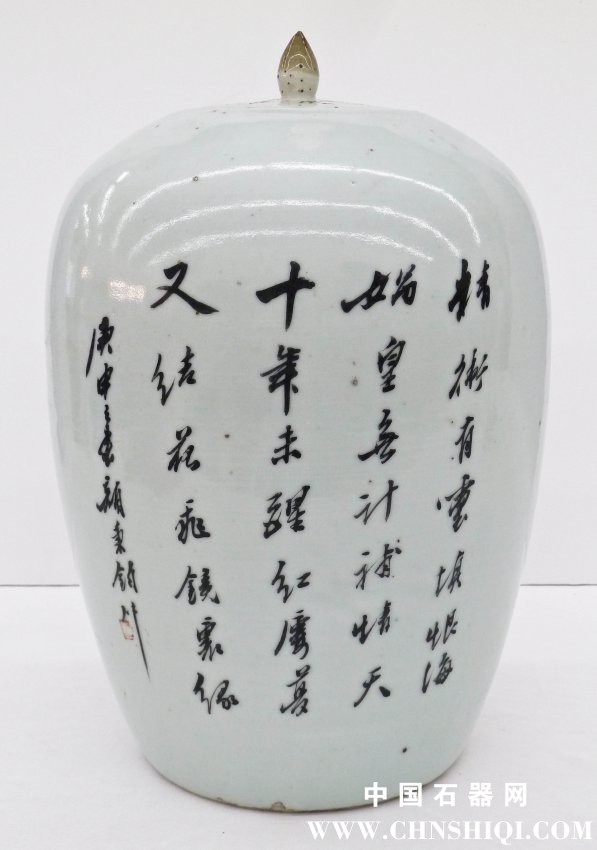 精衛有靈填恨海
媧皇無計補情天
十年未醒紅廔夢
又結菰飛鏡裏緣
庚申之春顏秉鈞
中国石器网
WWW.CHNSHIQI.COM